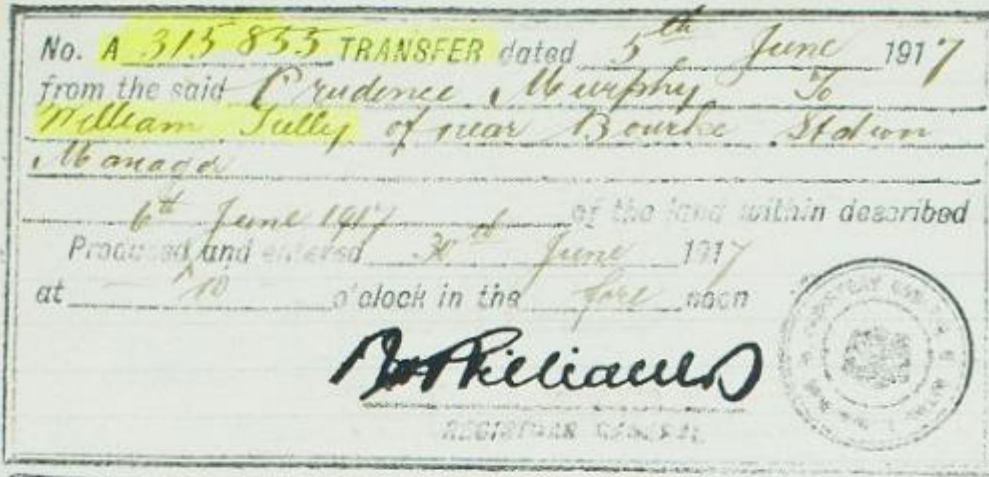 No. A 315855 TRANSFER dated 5th June 1917
from the said Prudence Murphy To
William Tully of near Bourke Station
Manager
6th June 1917 of the land within described
Produced and entered 30th June 1917
at 10 o'clock in the fore noon
REGISTRAR GENERAL